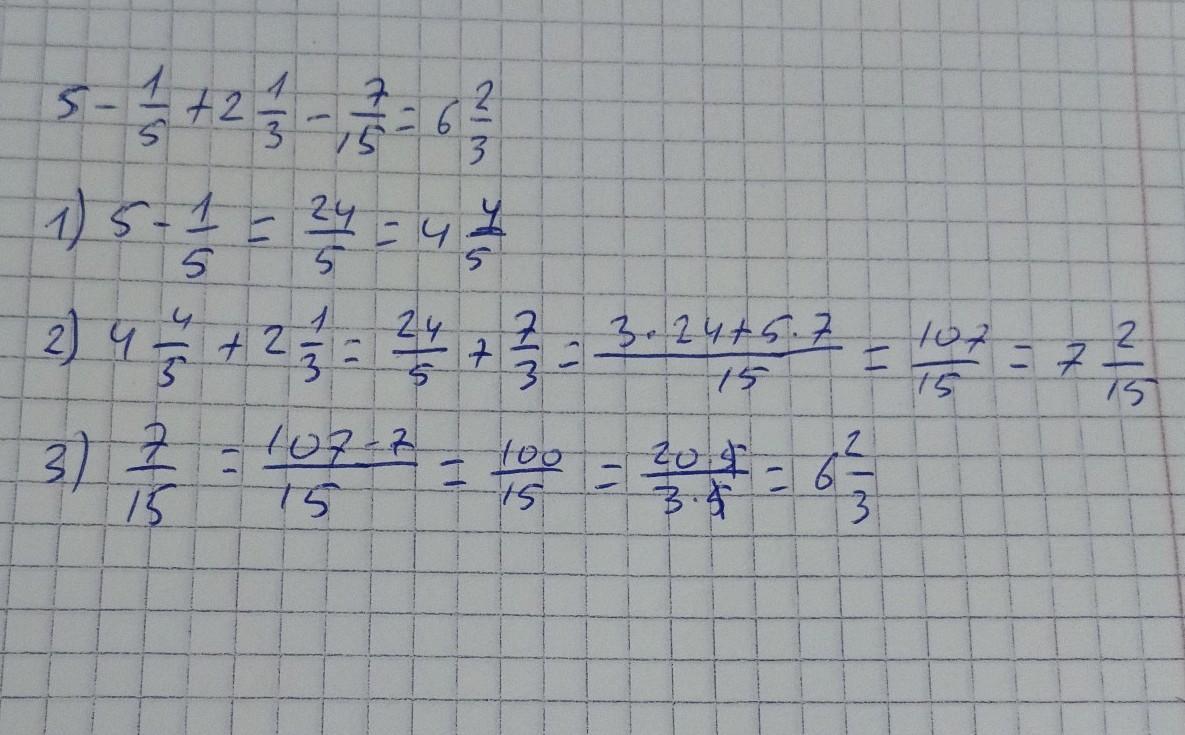 5 - 1/5 + 2 1/3 - 7/15 = 6 2/3
1) 5 - 1/5 = 24/5 = 4 4/5
2) 4 4/5 + 2 1/3 = 24/5 + 7/3 = (3·24+5·7)/15 = 107/15 = 7 2/15
3) 7/15 = (107-7)/15 = 100/15 = (20·5)/(3·5) = 6 2/3